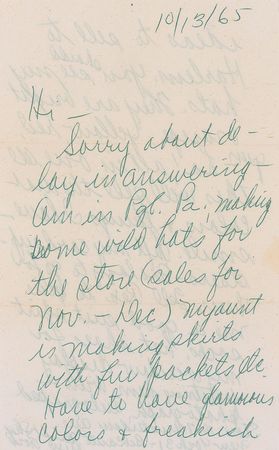 10/13/65
Hi —
Sorry about de-
lay in answering —
Am in Pgh. Pa., making
some wild hats for
the store (sales for
Nov. - Dec) my aunt
is making skirts
with fur pockets etc.
Have to have glamorous
colors + freakish